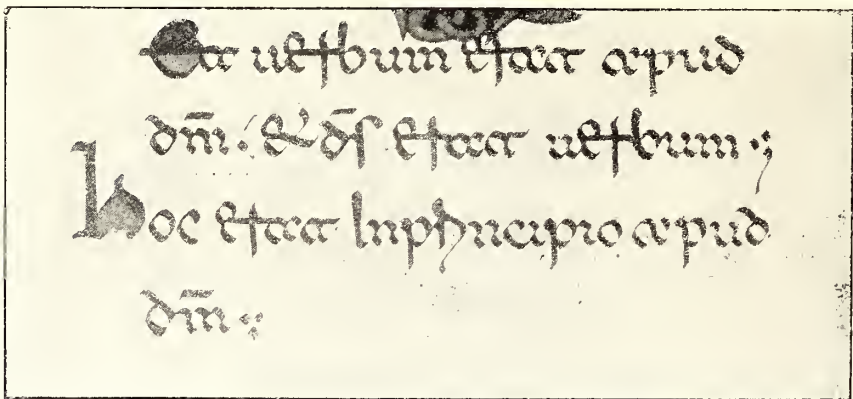 Et uerbum erat apud
dm̄. & d̄s erat uerbum·;
hoc erat In principio apud
dm̄·;